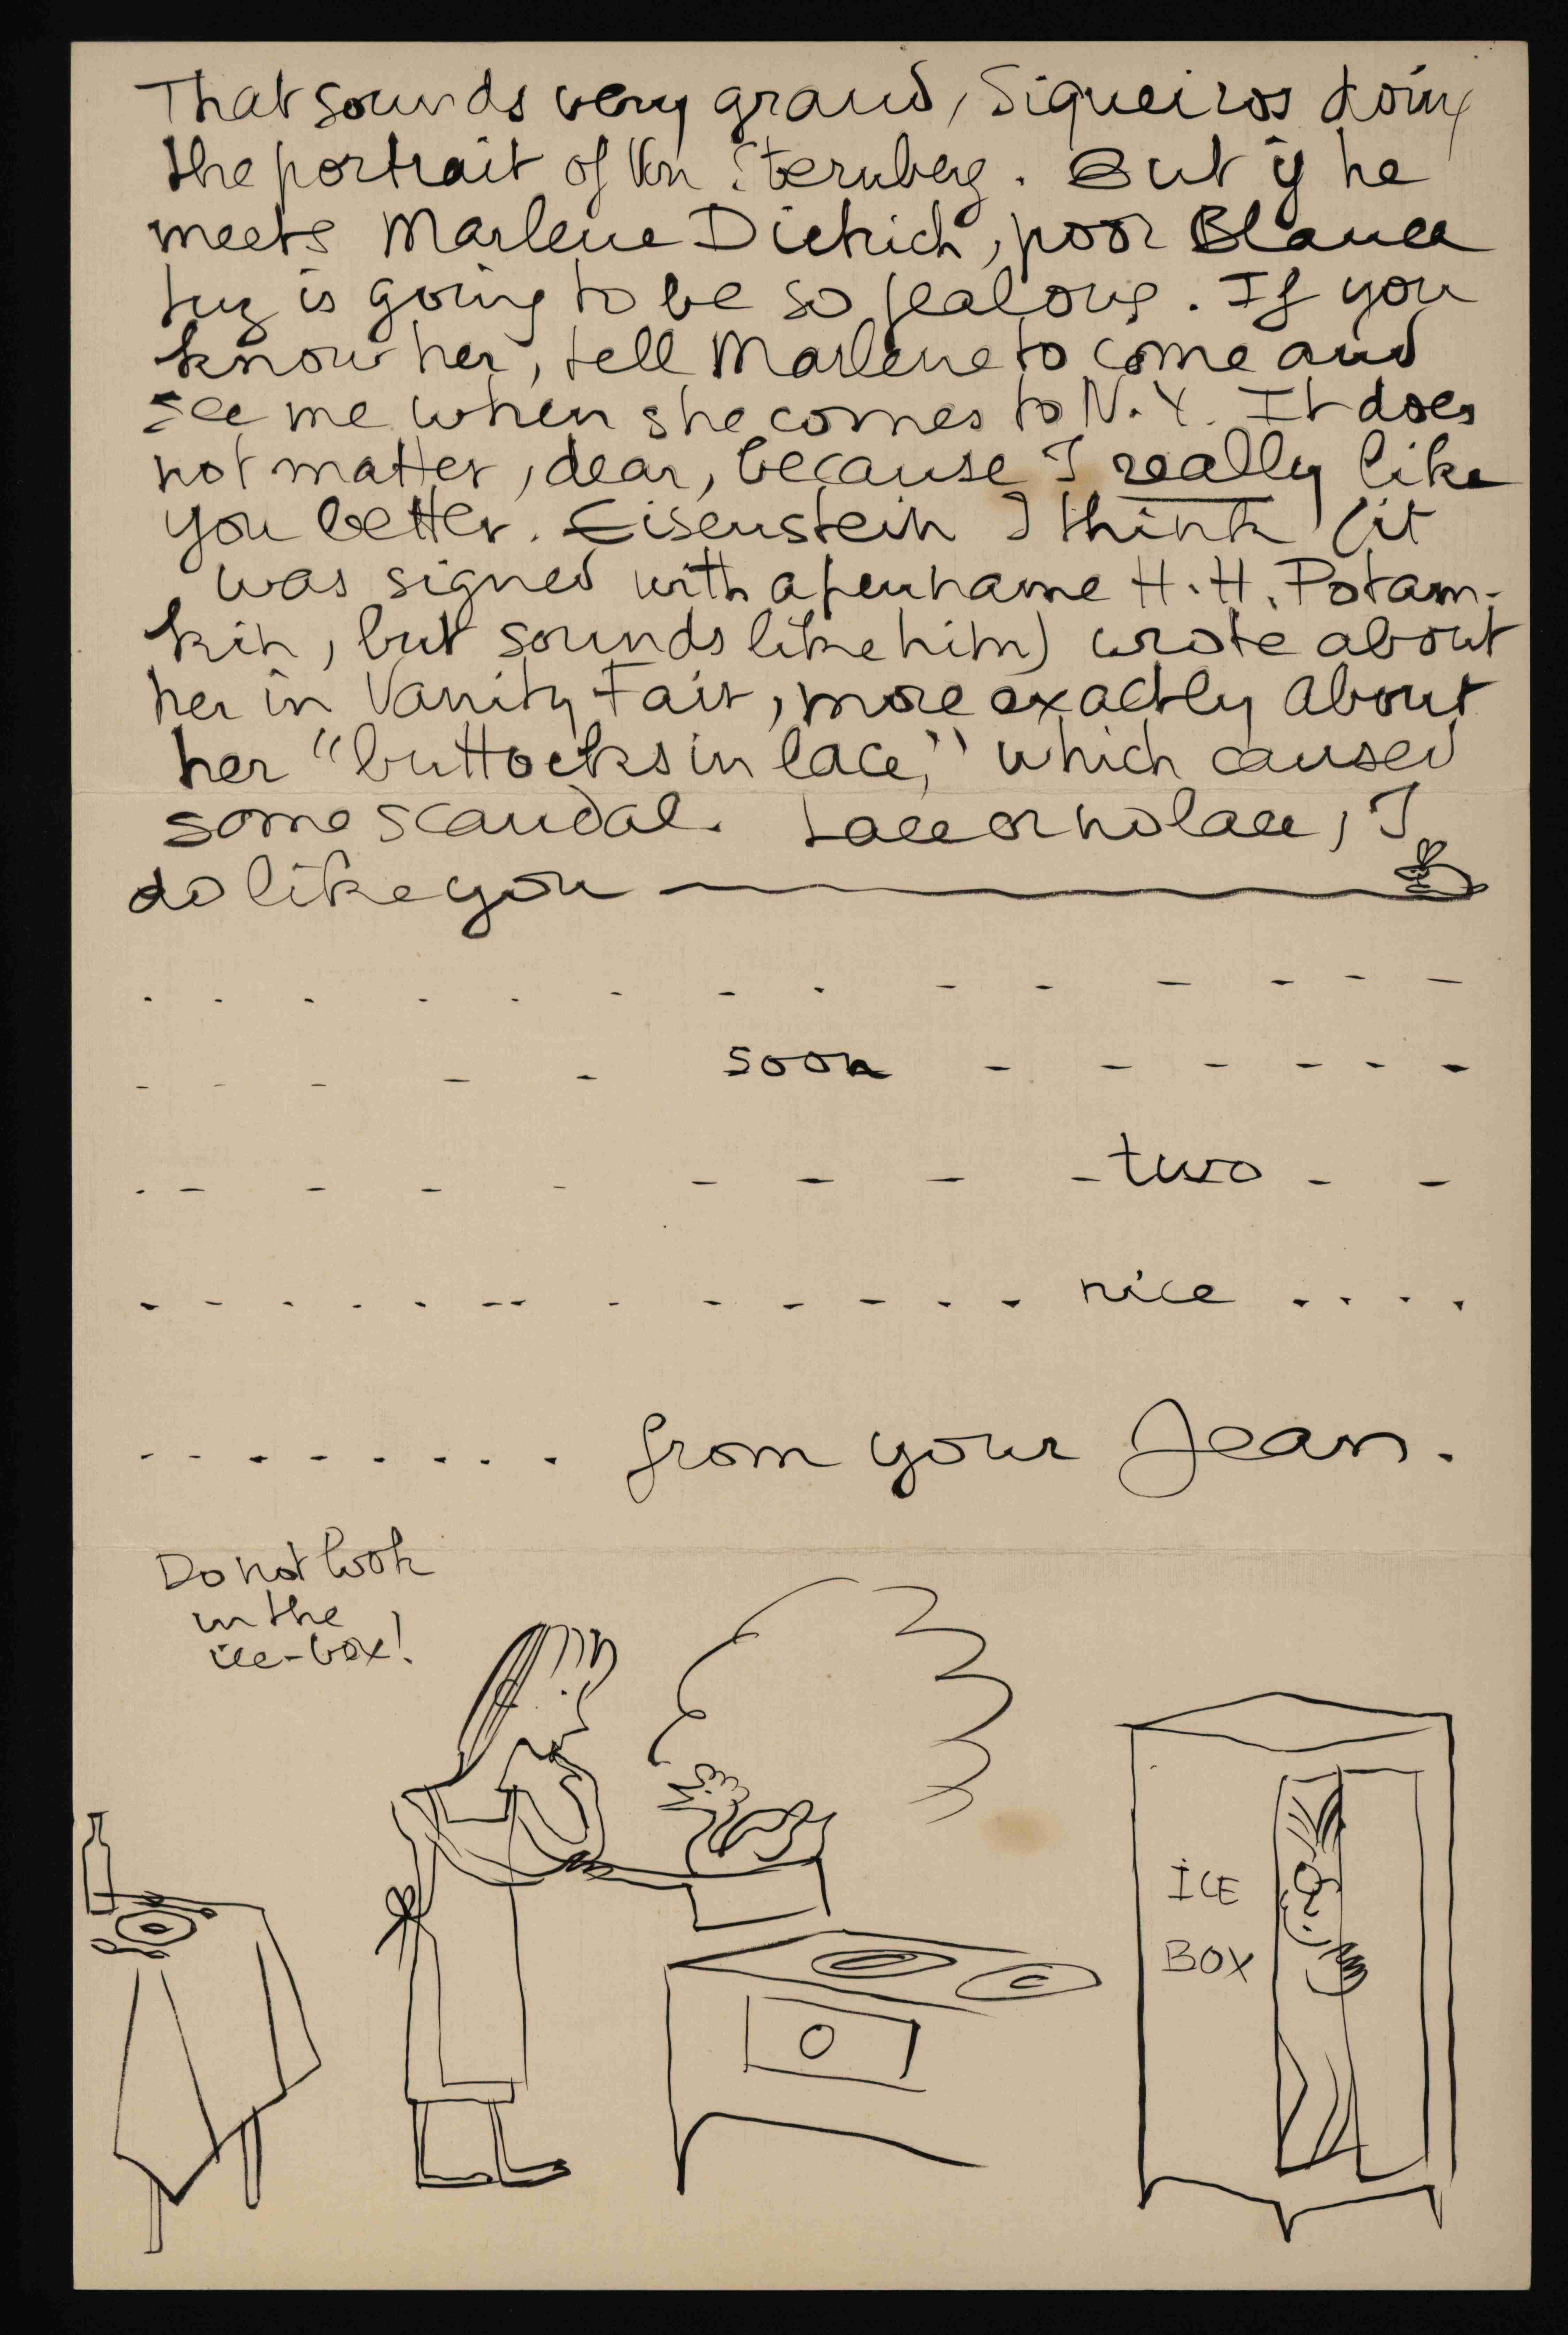 That sounds very grand, Siqueiros doing
the portrait of Von Sternberg. But if he
meets Marlene Dietrich, poor Blanca
Luz is going to be so jealous. If you
know her, tell Marlene to come and
see me when she comes to N.Y. It does
not matter, dear, because I really like
you better. Eisenstein I think (it
was signed with a penname H.H. Potam-
kin, but sounds like him) wrote about
her in Vanity Fair, more exactly about
her "buttocks in lace," which caused
some scandal. Lace or no lace, I
do like you ———
. . . . . . - . - - - - - -
- - - - - soon - - - - - -
. - - - - - - - - two - -
. - . . . -- . - - - . . nice . . . .
. . . . . . . . . from your Jean.
Do not look
in the
ice-box!
ICE
BOX